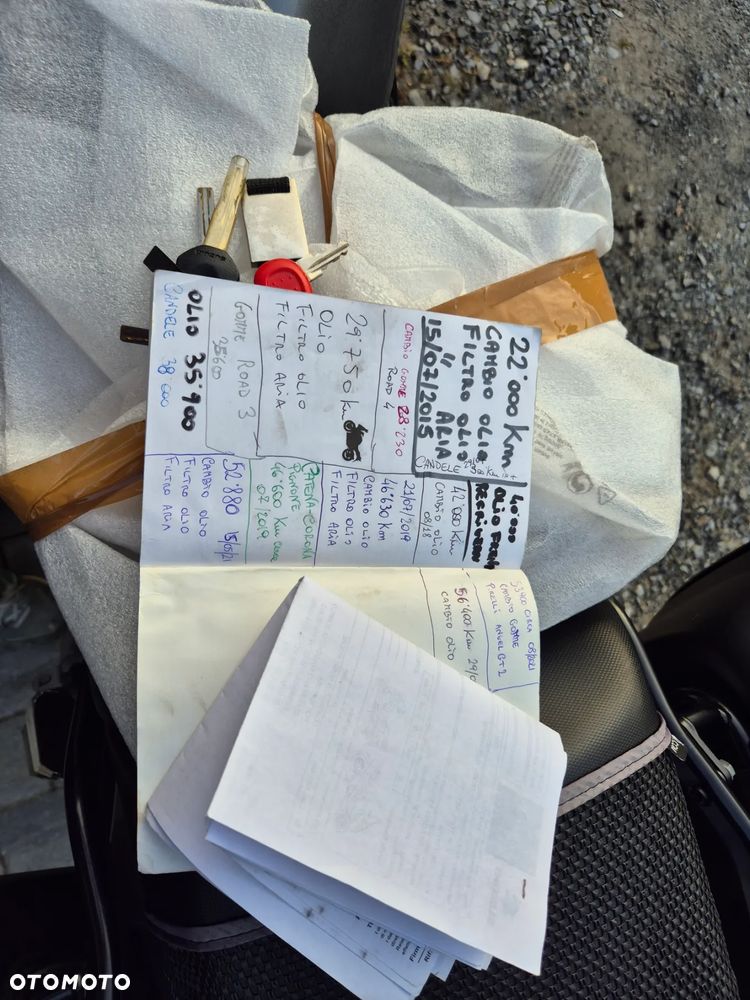 22'000 Km
CAMBIO OLIO
FILTRO OLIO
" ARIA
15/07/2015
CANDELE
CAMBIO GOMME 28'230
ROAD 4
29'750 km
OLIO
FILTRO OLIO
FILTRO ARIA
GOMME ROAD 3
25'600
OLIO 35'900
CANDELE 38'000
40'000
OLIO
42'000 Km
CAMBIO OLIO
08/18
21/07/2019
46'630 Km
CAMBIO OLIO
FILTRO OLIO
FILTRO ARIA
CATENA CORONA
PIGNONE
46'600 Km circa
07/2019
52'880 15/05/21
CAMBIO OLIO
FILTRO OLIO
FILTRO ARIA
53'400 CIRCA 08/2021
CAMBIO GOMME
PIRELLI ANGEL GT2
56'400 Km 29/0
CAMBIO OLIO
SUZUKI
OTOMOTO